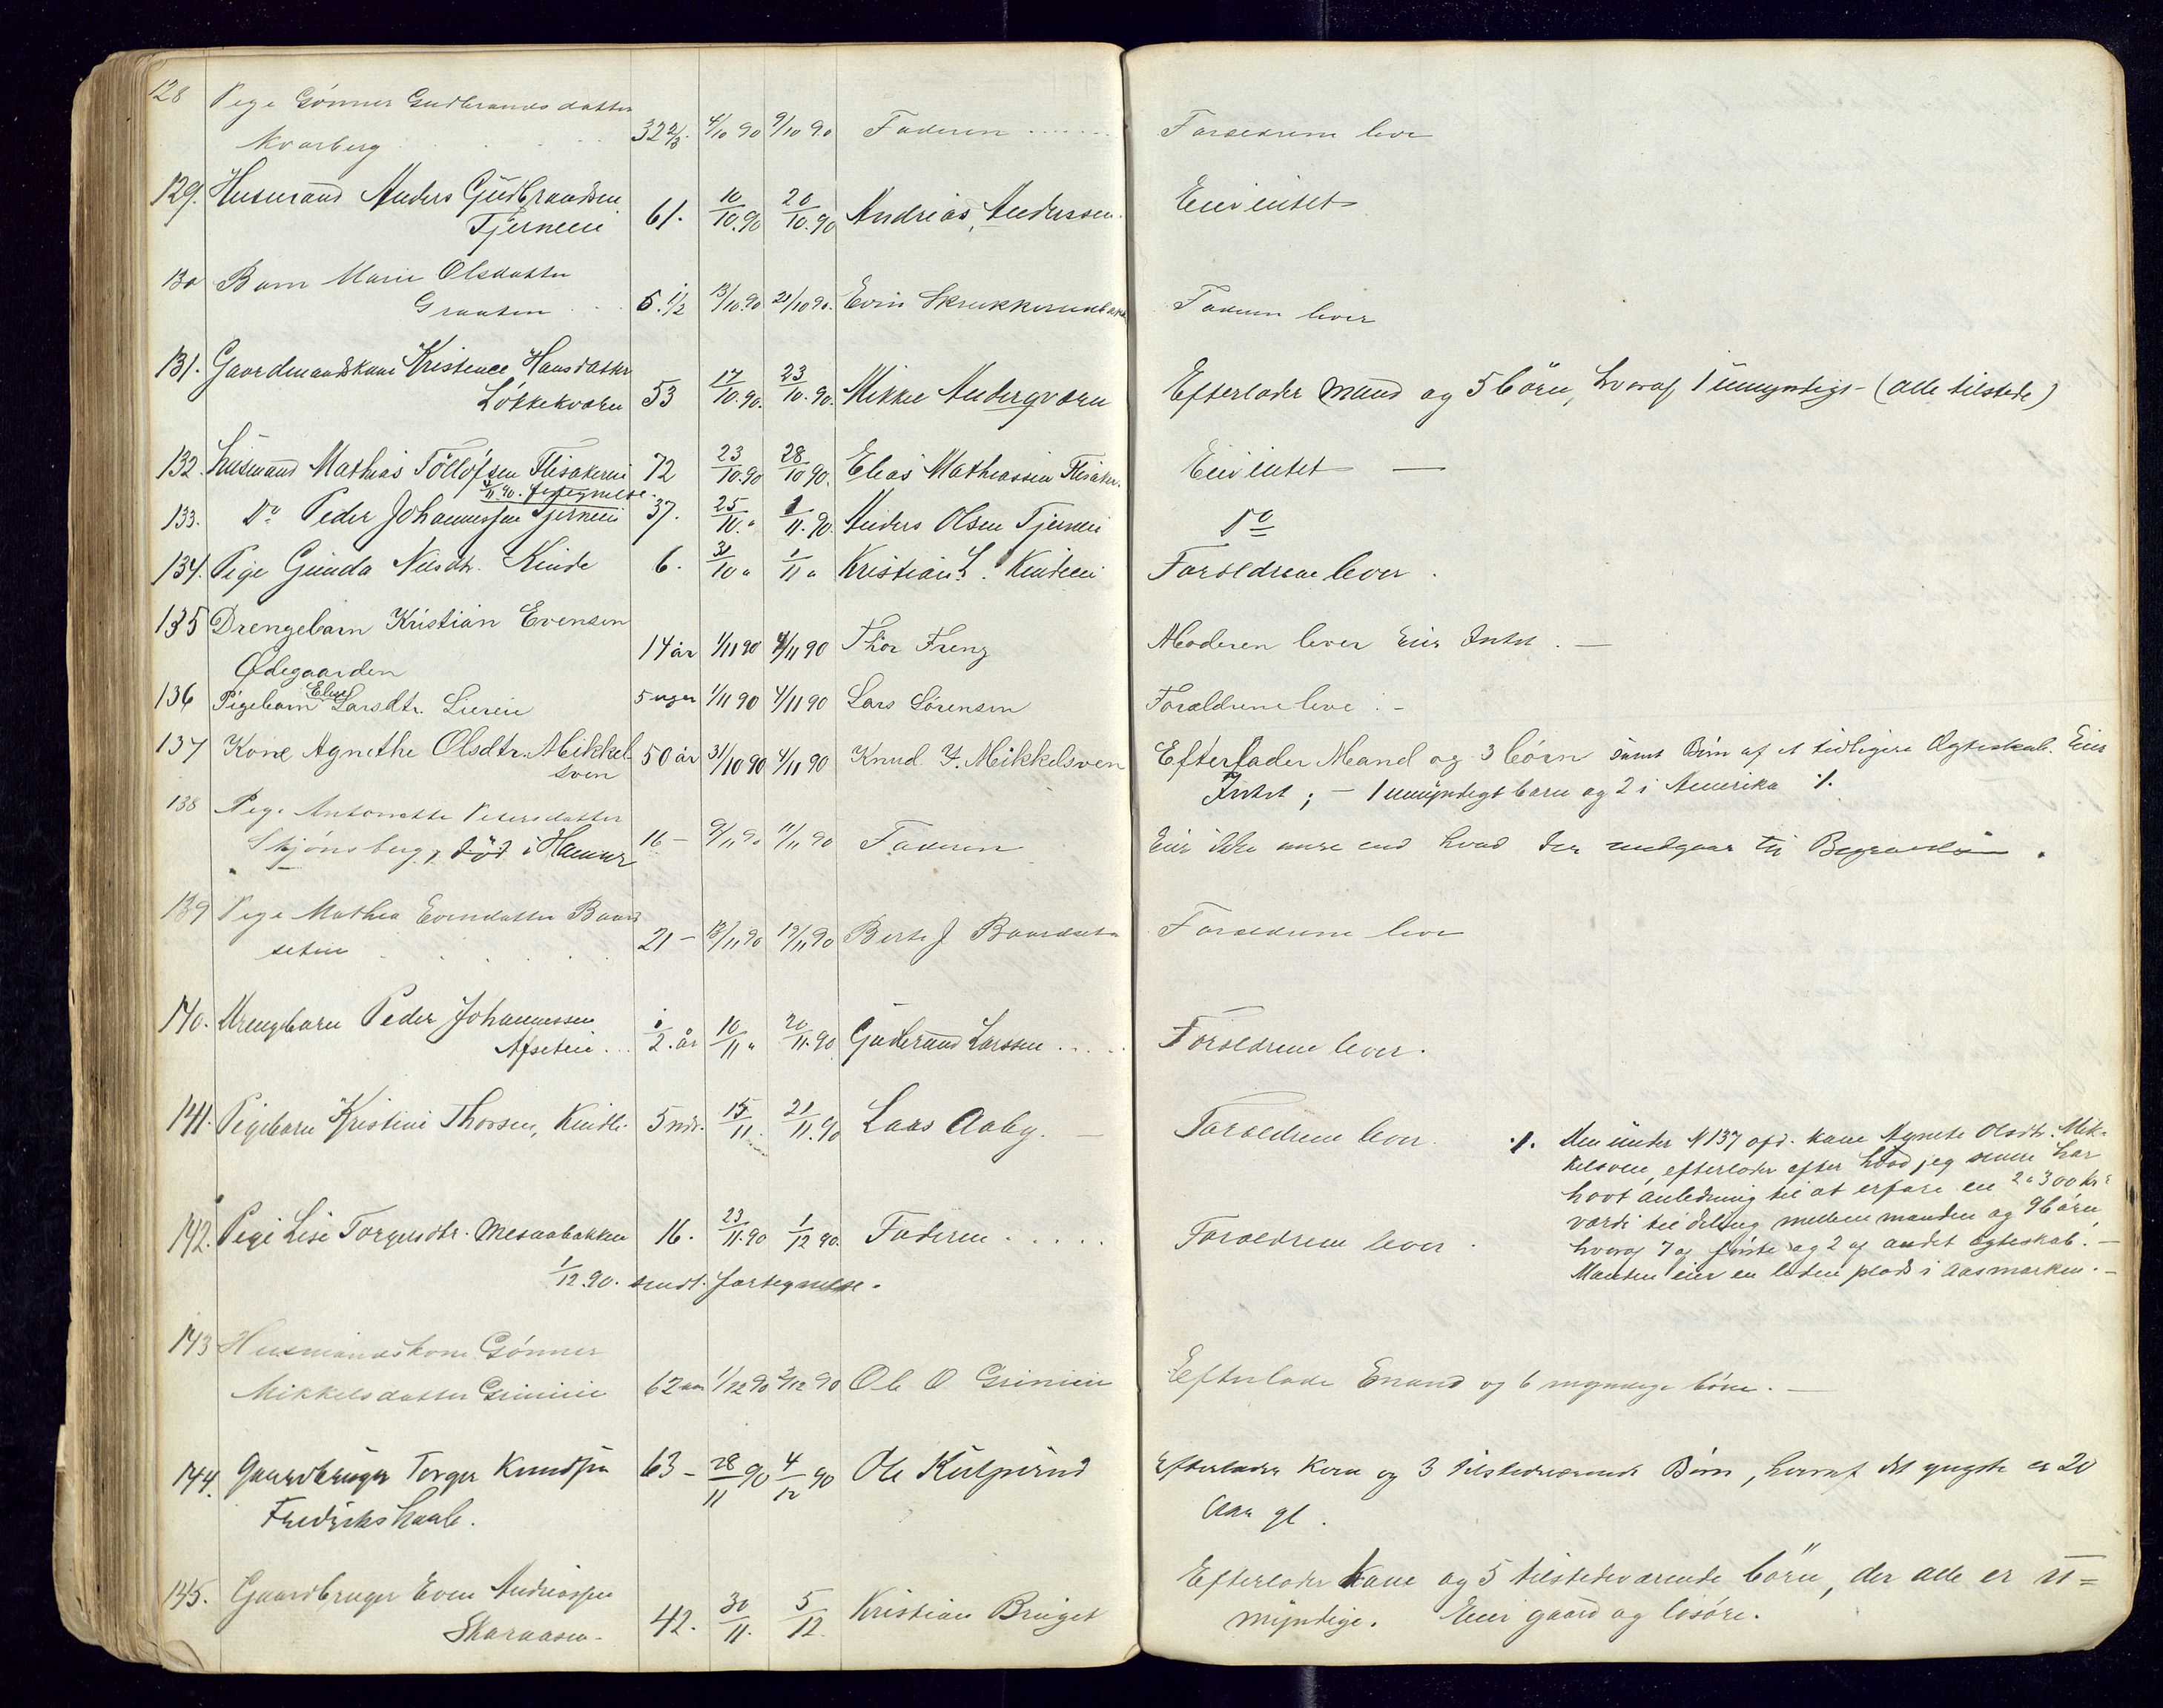 128 Pige Gønner Gudbrandsdatter
Kvarberg 32 2/3. 4/10 90 9/10 90 Faderen Forældrene leve
129. Husmand Anders Gudbrandsen
Tjerneie 61. 10/10.90 20/10.90 Andreas Andersen. Eier intet
130 Barn Marie Olsdatter
Graaten 5. 1/2 13/10.90 21/10 90. Even Faderen lever
131. Gaardmandskone Kristence Hansdatter
Løkkekværn 53 17/10.90. 23/10.90. Mikkel Anderqværn Efterlader mand og 5 börn, hvoraf 1 umyndigt – (alle tilstede)
132. husmand Mathias Tollofsen Flisakerei 72 23/10.90 28/10 90. Elias Mathiassen Flisaker. Eier intet —
3/11.90. fortegnelse.
133. Do Peder Johannessen Tjerneie 37. 25/10. " 1/11.90. Anders Olsen Tjerneie Do
134. Pige Gunda Nilsdtr. Kinde 6. 30/10 " 1/11 " Kristian L. Kindeei Forældrene lever.
135 Drengebarn Kristian Evensen
Ødegaarden 14 år 1/11 90 4/11 90 Thor Freng Moderen lever Eier Intet. —
136 Pigebarn Eline Larsdtr. Lierein 5 uger 1/11 90 4/11 90 Lars Sørensen Forældrene leve. –
137 Kone Agnethe Olsdtr. Mikkel
sven 50 år 31/10 90 4/11 90 Knud F. Mikkelsven Efterlader Mand og 3 børn samt Børn af et tidligere Ægteskab. Eier
Intet; – 1 umyndigt barn og 2 i Amerika ·/.
138 Pige Antonette Petersdatter
Skjønsberg, död i Hamar 16 – 9/11 90 11/11 90 Faderen Eier ikke mere end hvad der medgaar til Begravelsen.
139 Pige Mathea Evensdatter Baard
seten 21 – 13/11 90 19/11 90 Berte J Baardset Forældrene leve
140. Drengebarn Peder Johannessen
Afseteie 1/2 år 10/11 " 20/11.90 Gudbrand Larssen Forældrene lever.
141. Pigebarn Kristine Thorsen, Kindli 5 mdr. 15/11. 21/11.90 Lars Aaby. – Forældrene lever.
·/. Den under N 137 opf. kone Agnete Olsdtr. Mik-
kelsveen, efterlader efter hvad jeg senere har
havt anledning til at erfare en 2 a 300 Kr
værdi til deling mellem manden og 9 børn
hvoraf 7 af förste og 2 af andet egteskab. –
Manden eier en liden plads i Aasmarken. –
142. Pige Lise Torgersdtr. Mesnabakken 16. 23/11.90 1/12 90. Faderen Forældrene lever.
1/12.90. sendt fortegnelse.
143 Husmandskone Gønner
Mikkelsdatter Grinieie 62 aar 1/12 90 3/12 90 Ole O Grinieie Efterlade Emand og 6 myndige børn. —
144. Gaardbruger Torger Knudsen
Fredrikskaale. 63 – 28/11 90 4/12 90 Ole Kulpvind Efterlader Kone og 3 tilstedeværende Børn, hvoraf det yngste er 20
Aar gl.
145. Gaardbruger Even Andreassen
Skaraasen 42. 30/11. 5/12. Kristian Bruget Efterlader kone og 5 tilstedeværende börn, der alle er u=
myndige. Eier gaard og løsöre.